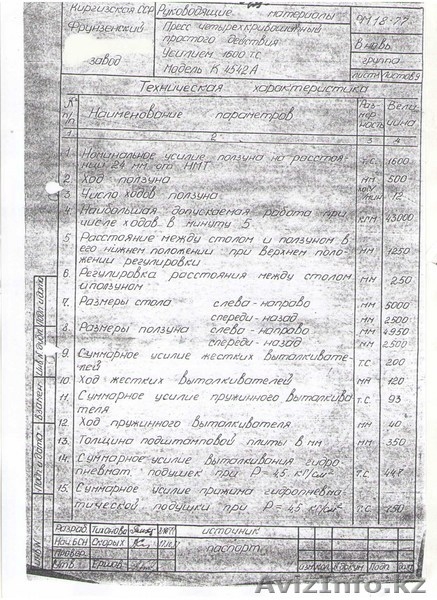 Киргизская ССР Руководящие материалы РМ 18-77
Фрунзенский
завод
Пресс четырехкривошипный
простого действия
Усилием 1600 тс
Модель К 4542А
Вновь
группа
Листов 9
Техническая характеристика
№ п/п Наименование параметров Размерность Величина
1 2 3 4
1 Номинальное усилие ползуна на расстоянии 24 мм от НМТ т.с 1600
2 Ход ползуна мм 500
3 Число ходов ползуна ход/мин 12
4 Наибольшая допускаемая работа при
числе ходов в минуту 5 кгм 43000
5 Расстояние между столом и ползуном в
его нижнем положении при верхнем поло-
жении регулировки мм 1250
6 Регулировка расстояния между столом
и ползуном мм 250
7. Размеры стола слева-направо мм 5000
спереди-назад мм 2500
8. Размеры ползуна слева-направо мм 4950
спереди-назад мм 2500
9. Суммарное усилие жестких выталкивате-
лей т.с 200
10. Ход жестких выталкивателей мм 120
11. Суммарное усилие пружинного выталкива-
теля т.с 93
12 Ход пружинного выталкивателя мм 40
13. Толщина подштамповой плиты в мм мм 350
14. Суммарное усилие выталкивания гидро-
пневмат. подушек при P=4,5 кг/см² т.с 447
15. Суммарное усилие прижима гидропневма-
тической подушки при P=4,5 кг/см² т.с
Разраб Тихонова источник
Нач.БСН Скорых
Провер. паспорт
Утв. Ершов
AvizInfo.kz